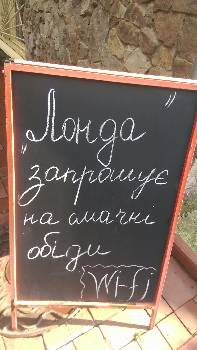 „Лонда"
запрошує
на смачні
обіди
Wi-fi